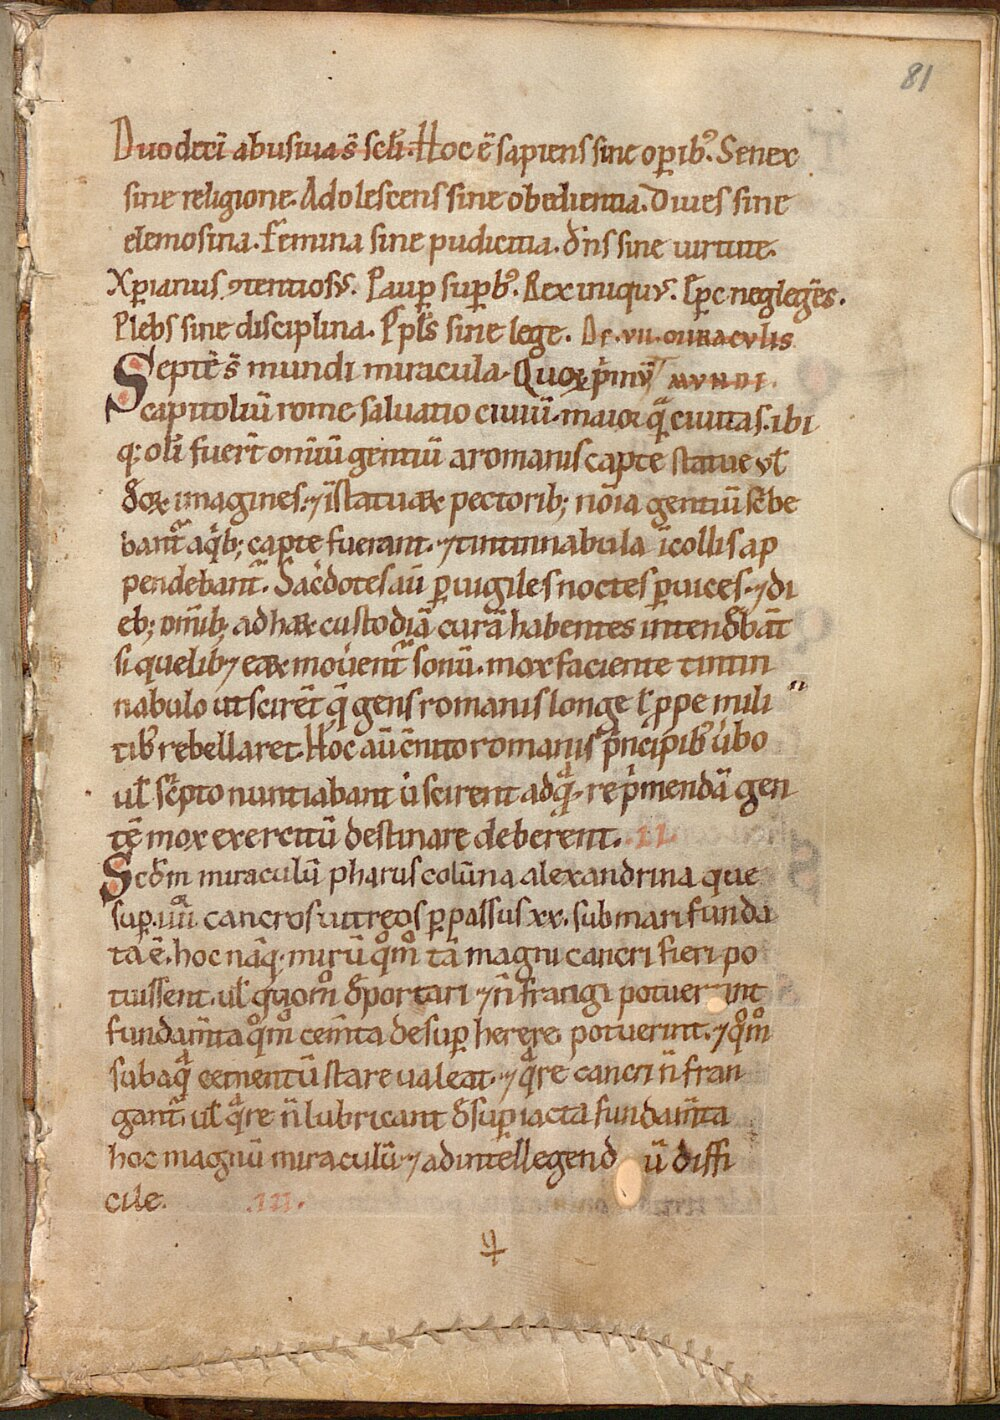 81
Duodeci abusiua s̄ scl̄i. Hoc ē sapiens sine oꝑibꝰ. Senex
sine religione. Adolescens sine obedientia. Diues sine
elemosina. Femina sine pudicitia. dn̄s sine uirtute.
Xꝑianus ꝯtentiosꝰ. Pauꝑ suꝑbꝰ. Rex iniquꝰ. Eꝑc neglegēs.
Plebs sine disciplina. Ppl̄s sine lege. De .vii. miracvlis
Septē s̄ mundi miracula. Quoꝝ pͥmū mvndi.
capitoliū rome saluatio ciuiū. maior qͣ̄ ciuitas. ibi
q; oli̅ fuer̄t om̄iū gentiū a romanis capte statue vl̄
d̄oꝝ imagines. ⁊ ī statuaꝝ pectorib; nōia gentiū sc̄be
bant᷑ a qͥb; capte fuerant. ⁊ tintinnabula ī collis ap
pendebant᷑. Sac̄dotes aū ꝑuigiles noctes ꝑ uices. ⁊ di
eb; om̄ib; ad haꝝ custodiā curā habentes intend̄bāt
si quelib; eaꝝ mouēent᷑ sonū. mox faciente tintin
nabulo ut scirēt q̄ gens romanis longe l̄ ꝓpe mili
tibꝰ rebellaret. Hoc aū c̄nito romanis pͥncipibꝰ ūbo
ul̄ sc̄pto nuntiabant ū scirent ad qͣ̄ repͥmendā gen
tē mox exercitū destinare deberent. .II.
Scd̄m miraculū pharus colūna alexandrina que
suꝑ .iiii. cancros uitreos ꝑ passus xx. sub mari funda
ta ē. hoc nāq; mirū qͦmͦ tā magni cancri fieri po
tuissent. ul̄ qͦmͦ d̄portari ⁊ n̄ frangi potuerint
fundam̄ta qͦmͦ cem̄ta desuꝑ herere potuerint. ⁊ qͦmͦ
sub aqͣ cementū stare ualeat. ⁊ qͣre cancri n̄ fran
gant᷑. ul̄ qͣre n̄ lubricant d̄suꝑ iacta fundam̄ta
hoc magnū miraculū. ⁊ ad intellegendū diffi
cile. .III.